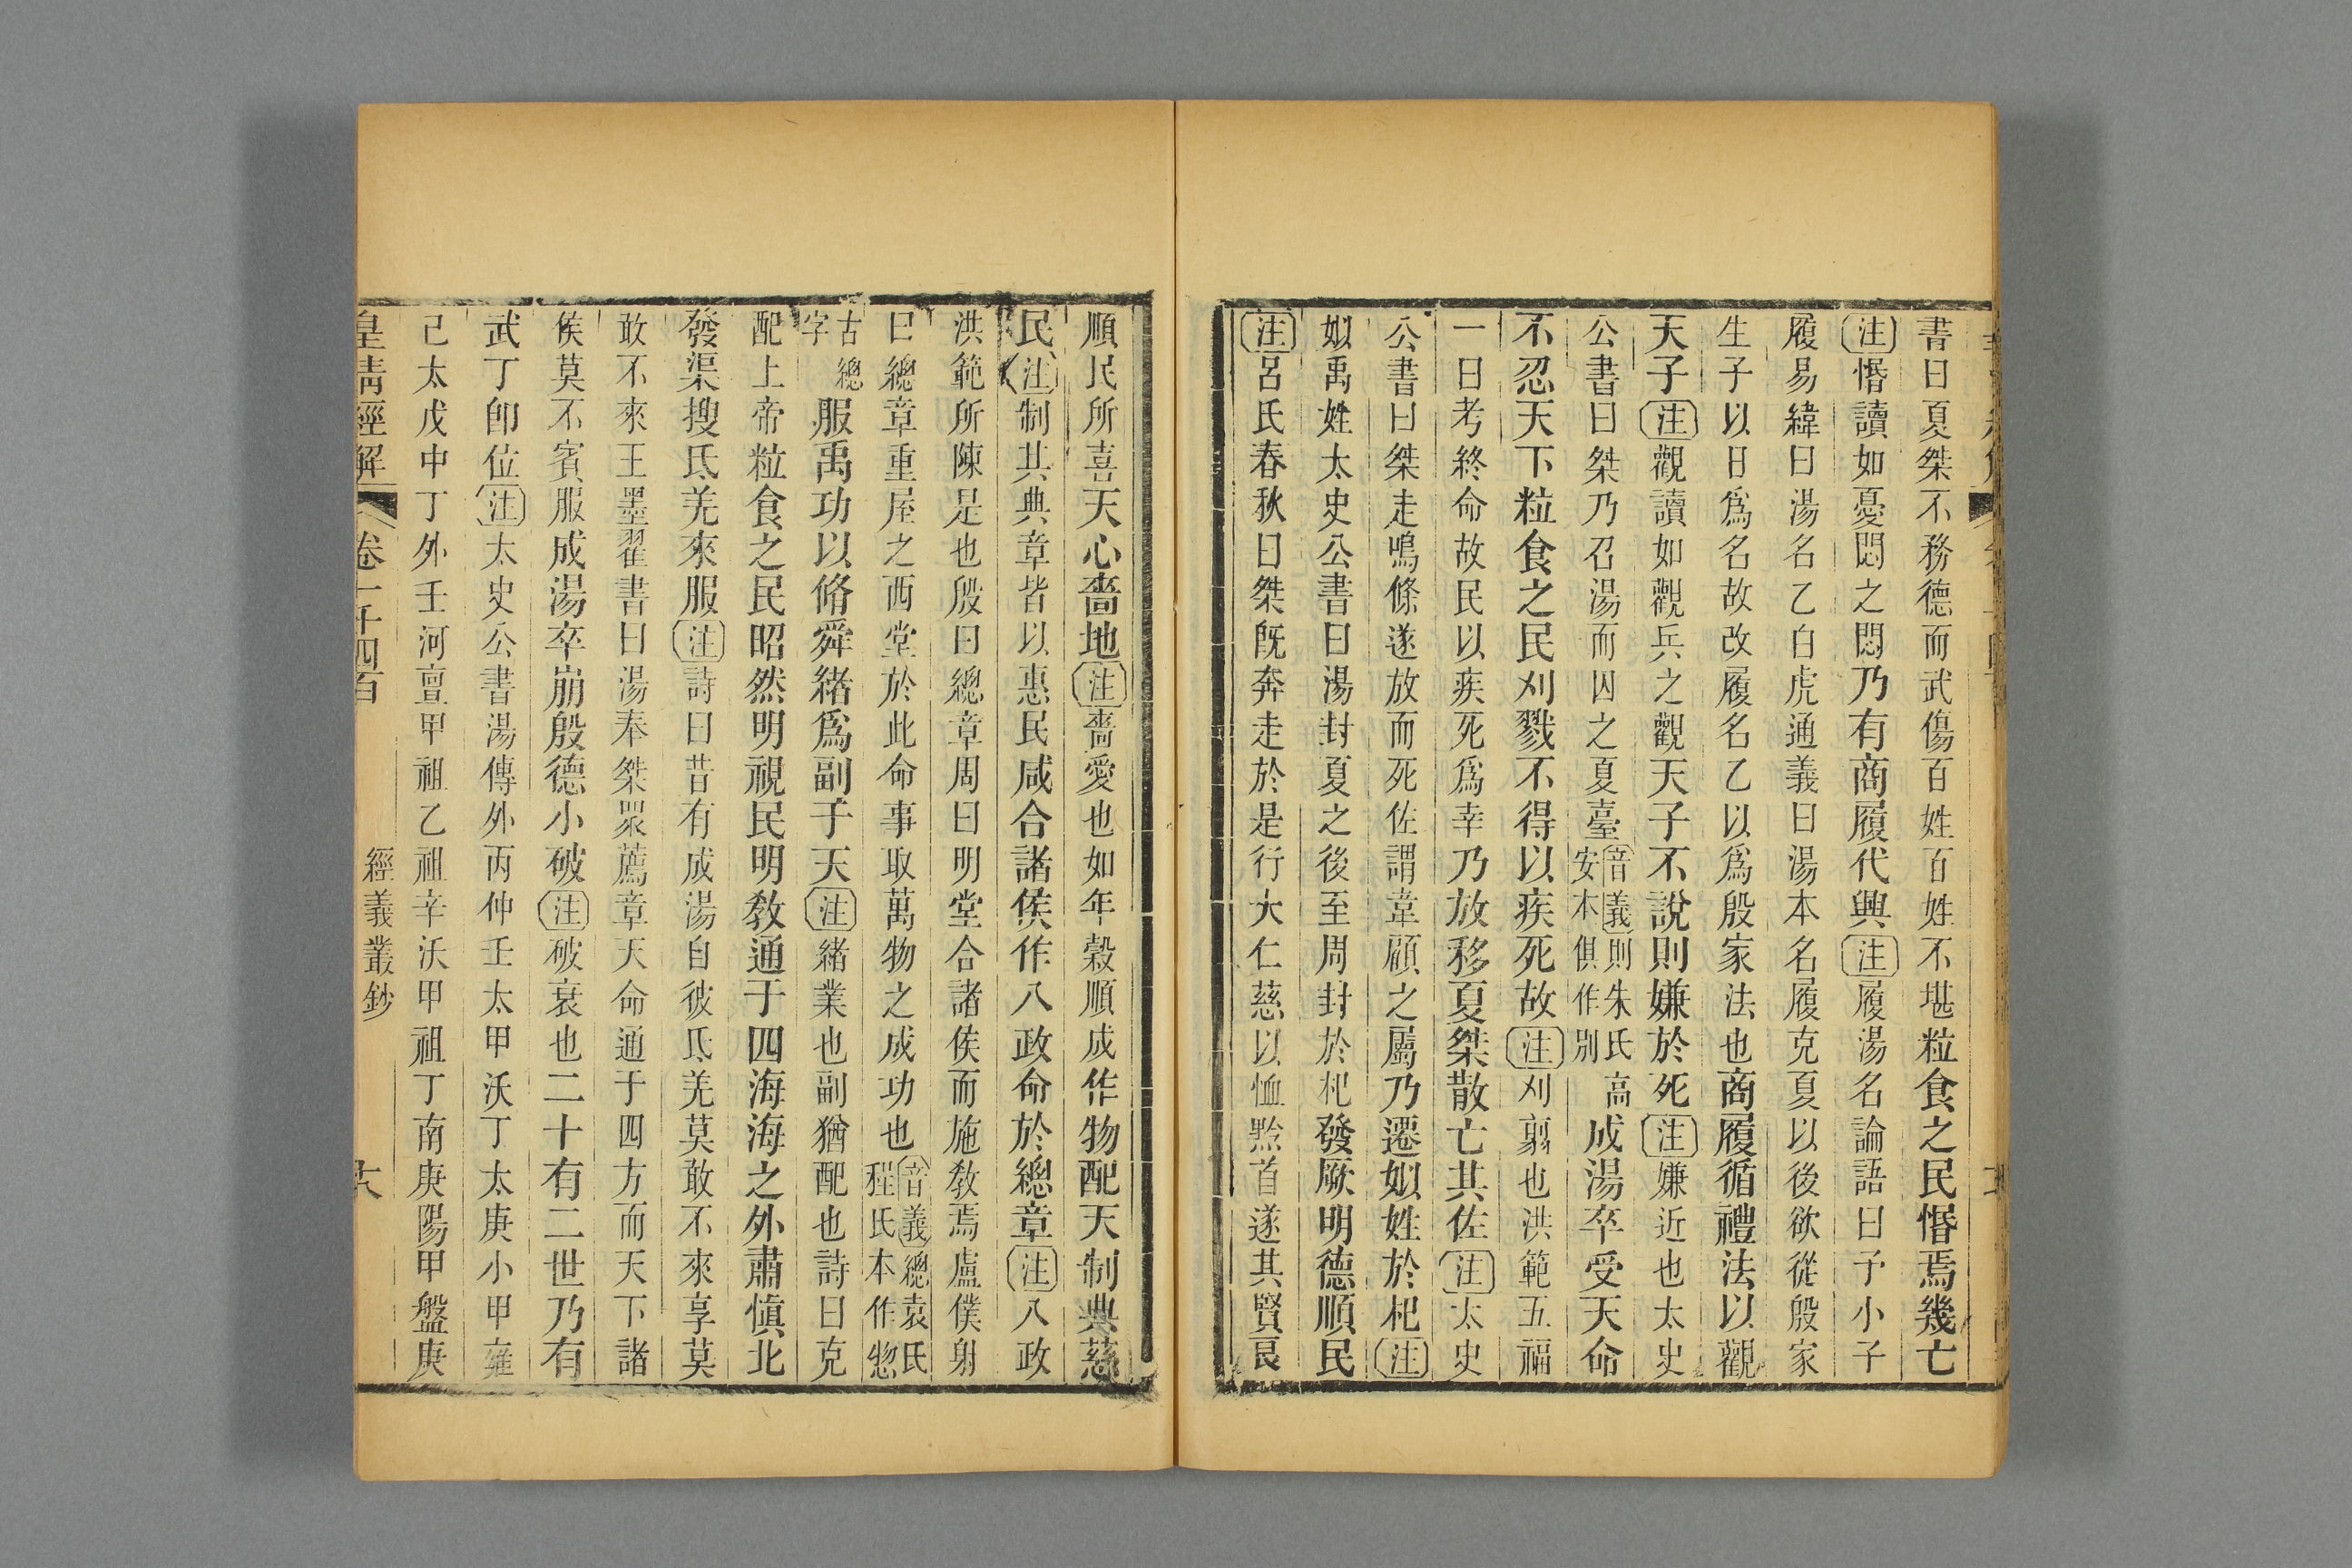 書曰夏桀不務德而武傷百姓百姓不堪粒食之民惛焉幾亡
注惛讀如憂悶之悶乃有商履代興注履湯名論語曰予小子
履易緯曰湯名乙白虎通義曰湯本名履克夏以後欲從殷家
生子以日爲名故改履名乙以爲殷家法也商履循禮法以觀
天子注觀讀如觀兵之觀天子不說則嫌於死注嫌近也太史
公書曰桀乃召湯而囚之夏臺音義則朱氏高安本俱作別成湯卒受天命
不忍天下粒食之民刈戮不得以疾死故注刈翦也洪範五福
一曰考終命故民以疾死爲幸乃放移夏桀散亡其佐注太史
公書曰桀走鳴條遂放而死佐謂韋顧之屬乃遷姒姓於杞注
姒禹姓太史公書曰湯封夏之後至周封於杞發厥明德順民
注呂氏春秋曰桀旣奔走於是行大仁慈以恤黔首遂其賢良
順民所喜天心嗇地注嗇愛也如年穀順成作物配天制典慈
民注制其典章皆以惠民咸合諸侯作八政命於總章注八政
洪範所陳是也殷曰總章周曰明堂合諸侯而施敎焉盧僕射
曰總章重屋之西堂於此命事取萬物之成功也音義總袁氏程氏本作惣
古總字服禹功以脩舜緒爲副于天注緒業也副猶配也詩曰克
配上帝粒食之民昭然明視民明敎通于四海海之外肅愼北
發渠搜氐羌來服注詩曰昔有成湯自彼氐羌莫敢不來享莫
敢不來王墨翟書曰湯奉桀眾薦章天命通于四方而天下諸
侯莫不賓服成湯卒崩殷德小破注破衰也二十有二世乃有
武丁卽位注太史公書湯傳外丙仲壬太甲沃丁太庚小甲雍
己太戊中丁外壬河亶甲祖乙祖辛沃甲祖丁南庚陽甲盤庚
皇淸經解 卷一千四百 經義叢鈔 六